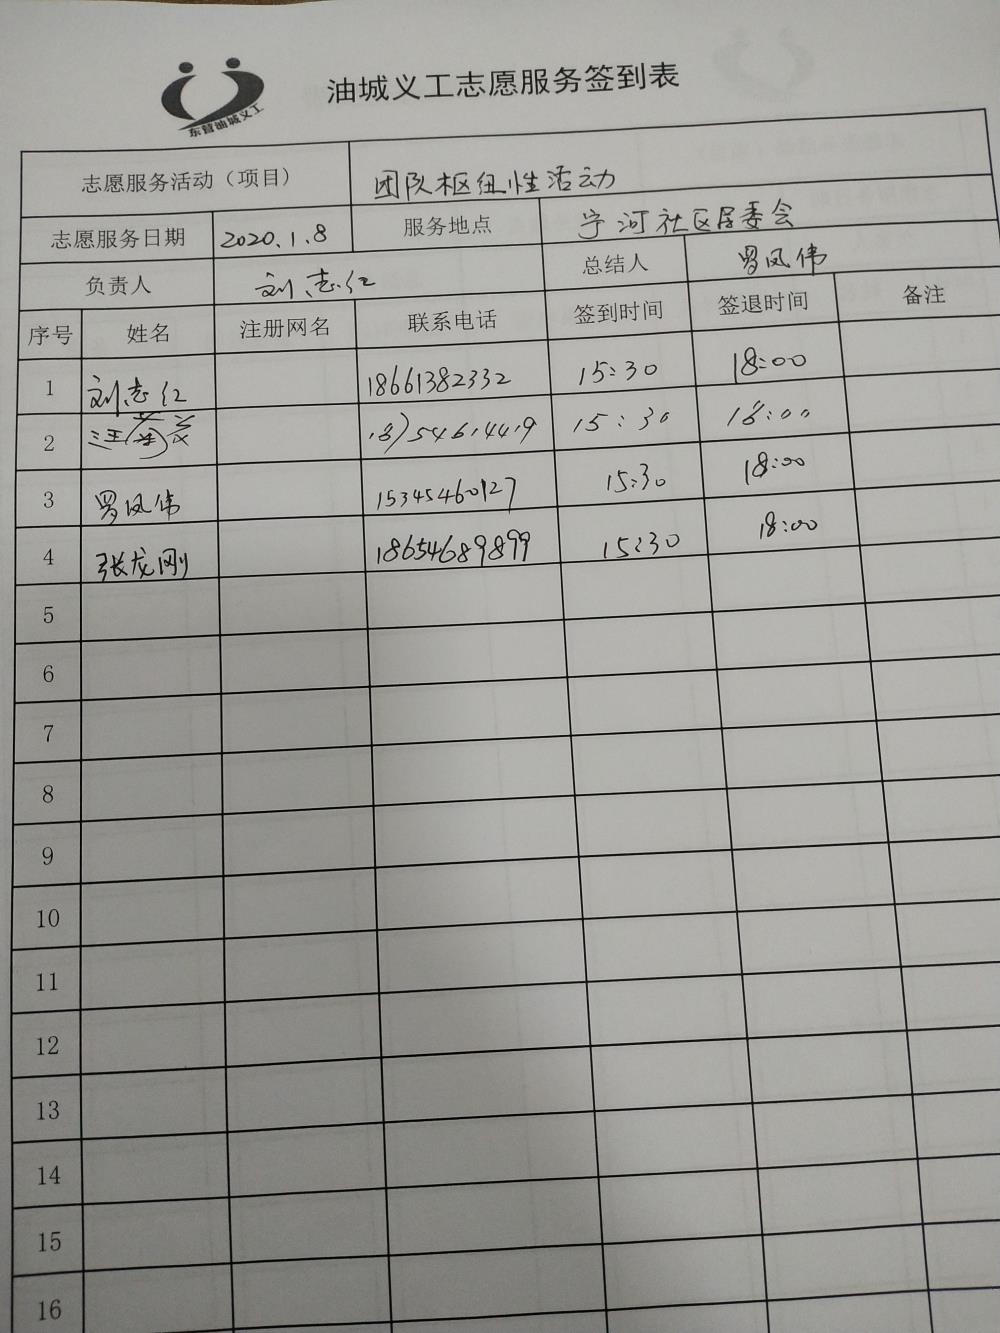 东营油城义工
油城义工志愿服务签到表
志愿服务活动（项目） 团队枢纽性活动
志愿服务日期 2020.1.8 服务地点 宁河社区居委会
负责人 刘志红 总结人 罗凤伟
序号 姓名 注册网名 联系电话 签到时间 签退时间 备注
1 刘志红 18661382332 15:30 18:00
2 15:30 18:00
3 罗凤伟 15345460127 15:30 18:00
4 张龙刚 18654689899 15:30 18:00
5
6
7
8
9
10
11
12
13
14
15
16